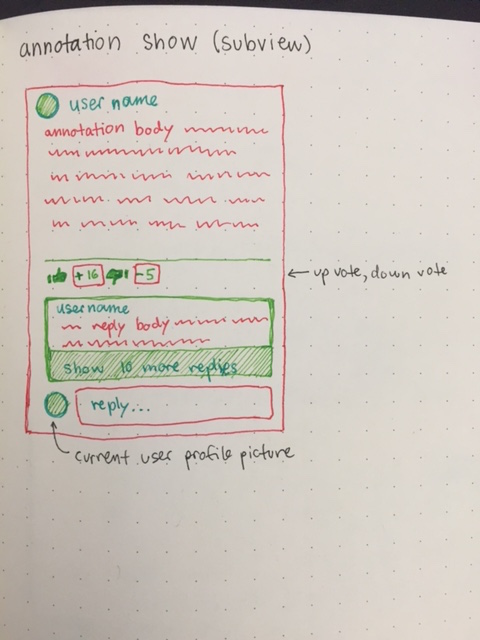 annotation show (subview)
user name
annotation body
+16 -5
upvote, down vote
username
reply body
show 10 more replies
reply...
current user profile picture